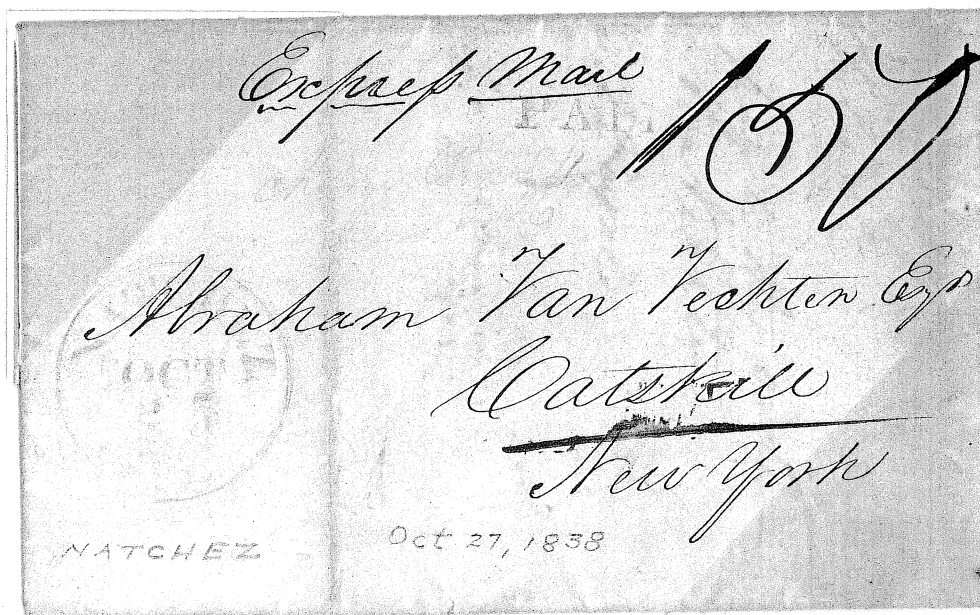 Express Mail
150
Abraham Van Vechten Esqr
Catskill
New York
NATCHEZ
Oct 27, 1838